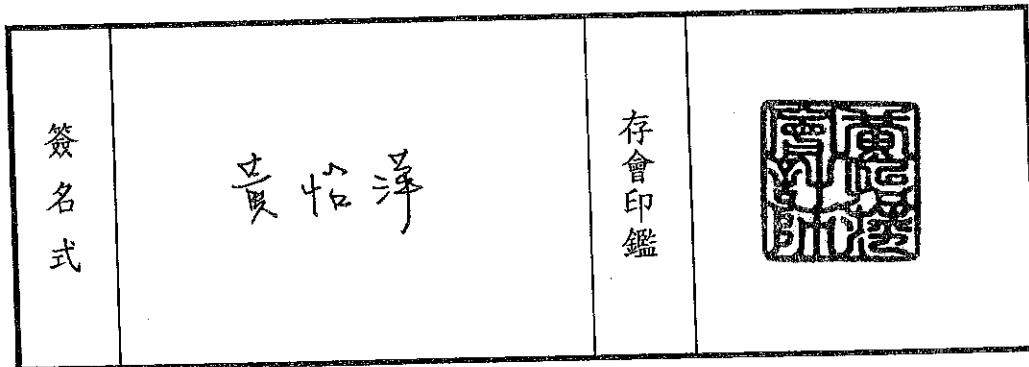 簽名式
黃怡萍
存會印鑑